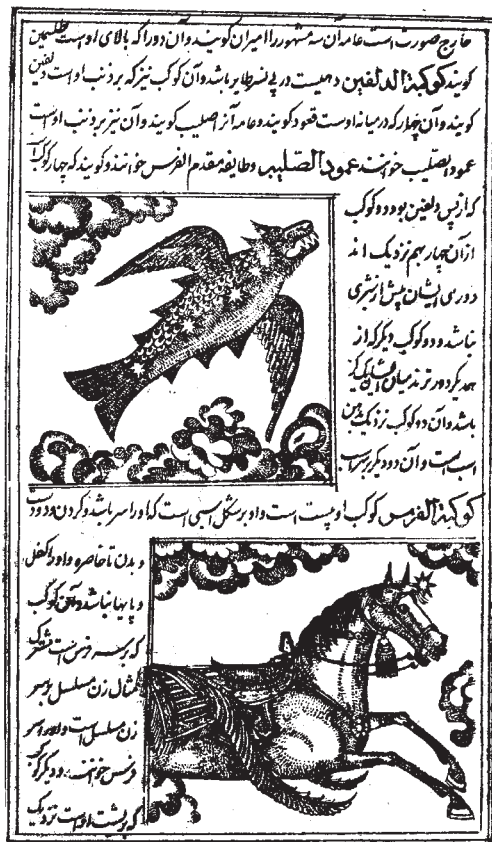 خارج صورتست عامه آن سه مشهور را میزان گویند و آن دو را که بالای اوست ظلیمین
گویند کوکبة الدلفین ده است در پی نسر طایر باشد و آن کوکب نیز که بر ذنب اوست دلفین
گویند و آن چهار که در میانه اوست قعود گویند و عامه آنرا صلیب گویند و آن نیز بر ذنب اوست
عمود الصلیب خوانند عمود الصلیب و طایفه مقدم الفرس خوانند و گویند که چهار کوکب
که از پس دلفین بود دو کوکب
از آن چهار بهم نزدیک اند
دوری ایشان بیش از شبری
نباشد و دو کوکب دیگر که از
همدیگر دورترند میان ایشان یک گز
باشد و آن دو کوکب نزدیک بر دهن
اسب است و آن دو دیگر بر سر اسب
کوکبة الفرس کوکب او بیست است و او بر شکل اسبی است که او را سر باشد و گردن و دو دست
و بدن تا خاصره و او را کفل
و پایها نباشد و آن کوکب
که بر سره فرس است مشترک
تمثال زن مسلسل و بر سر
زن مسلسل است و او را سر
فرس خوانند و دیگر کوکب
که بر پشت اوست نزدیک